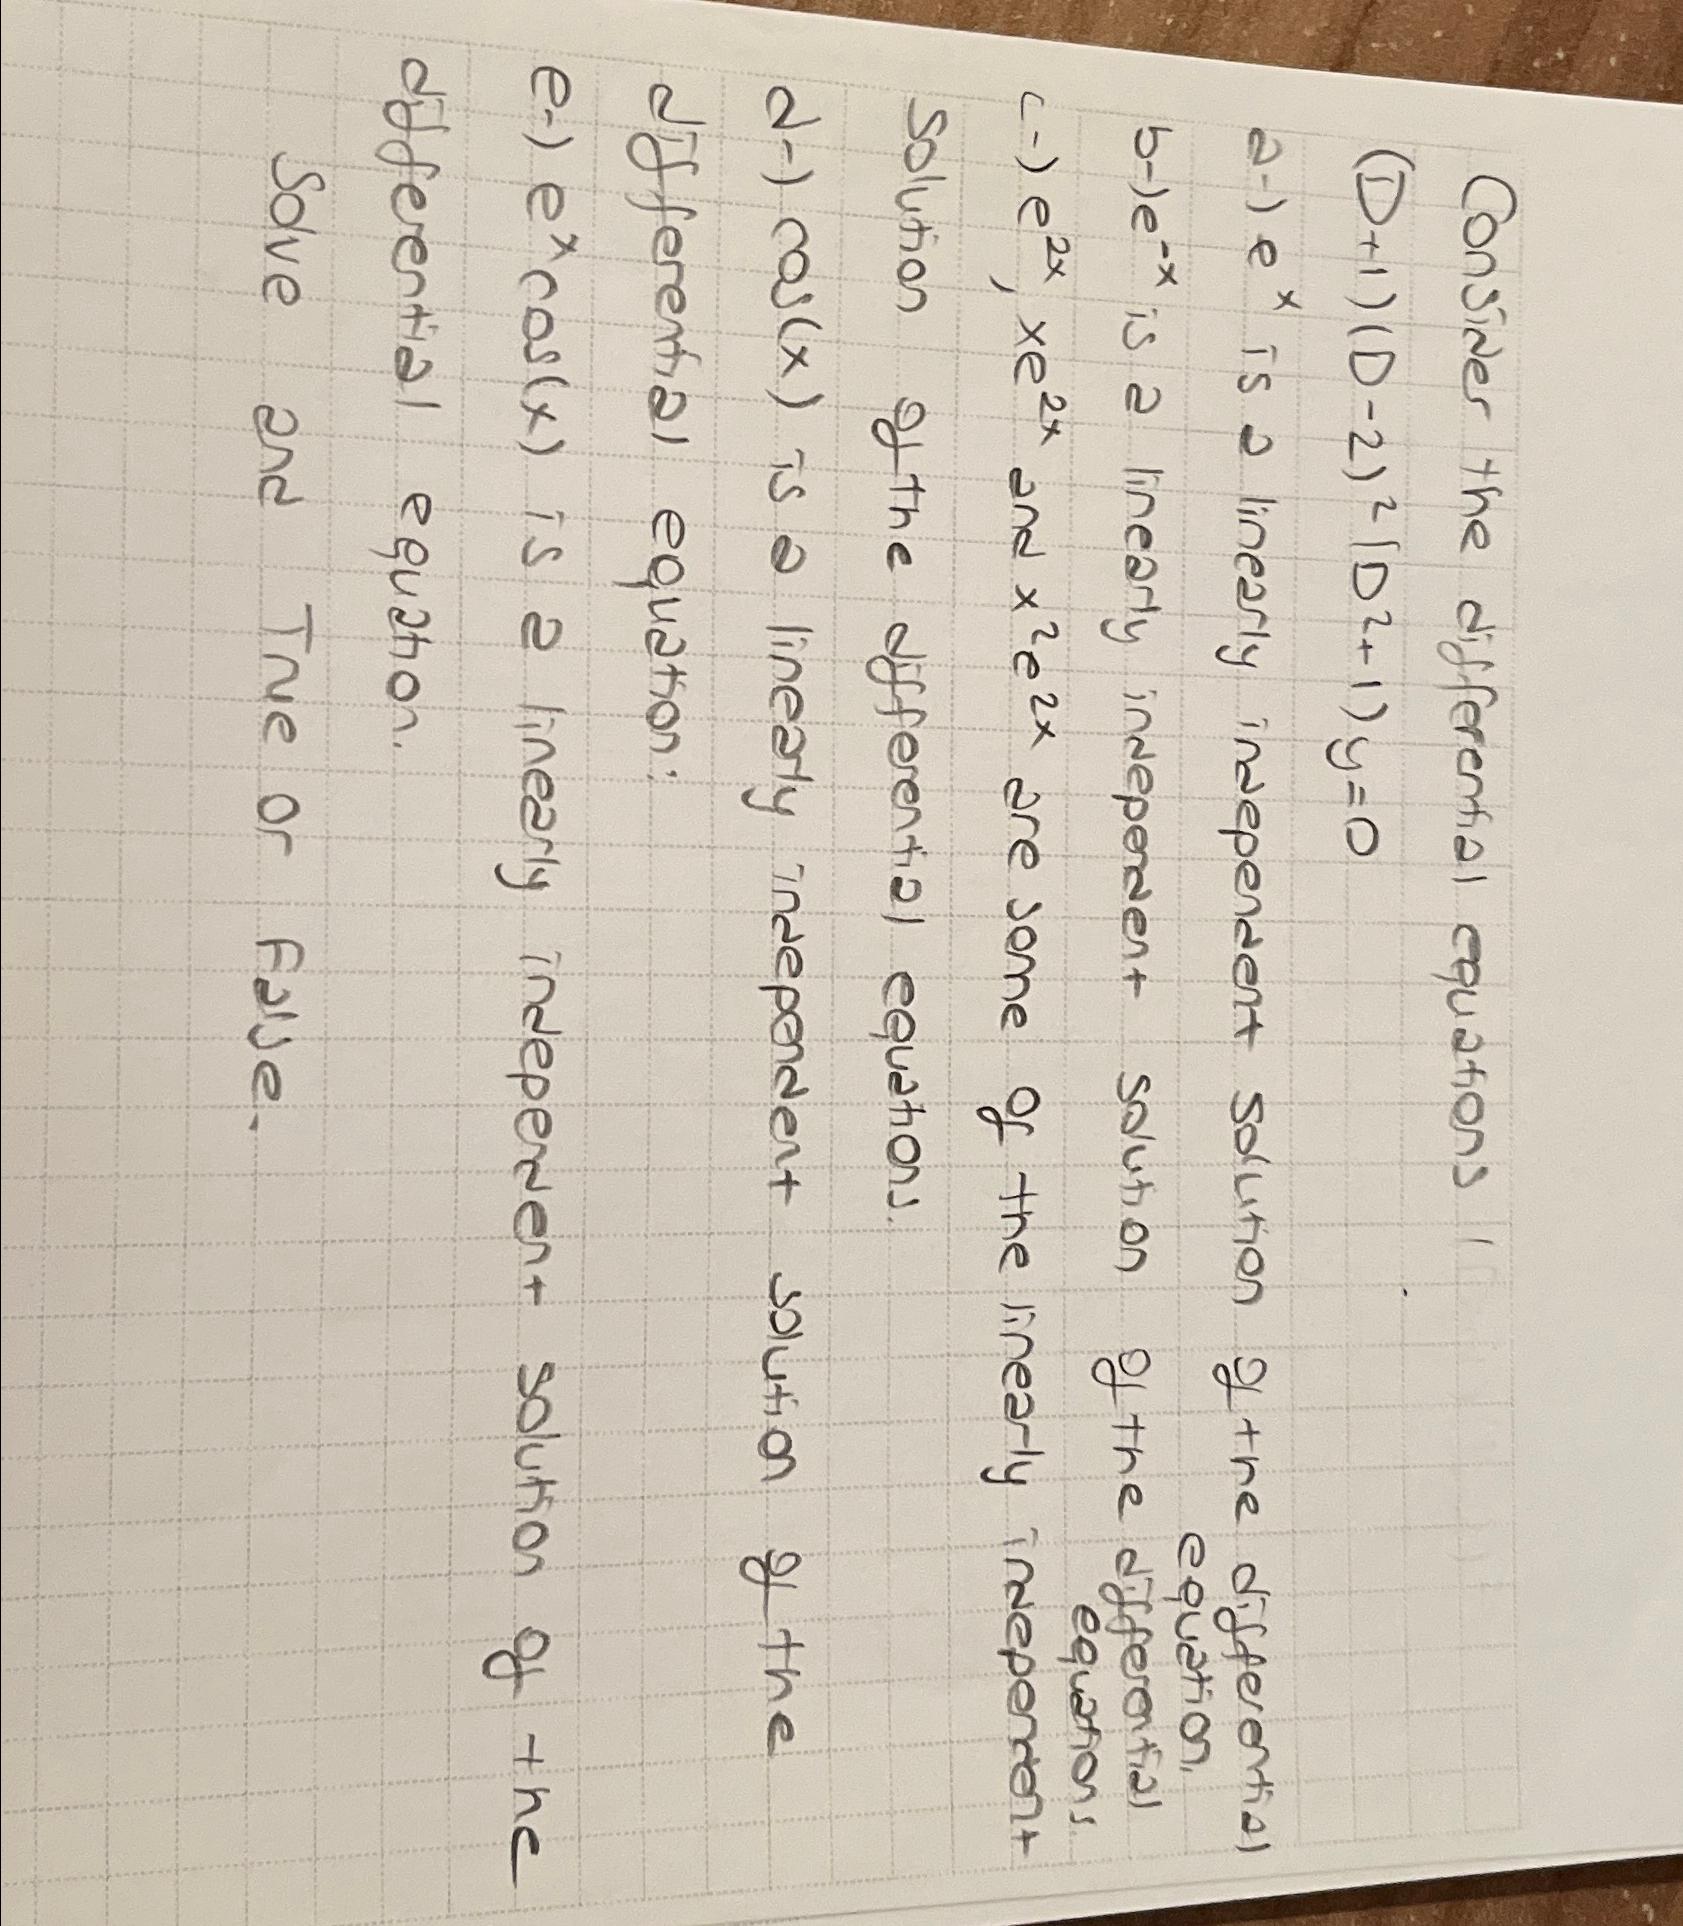 Consider the differential equations
(D+1)(D-2)²(D²+1)y=0
a-) eˣ is a linearly independent solution of the differential
equation.
b-) e⁻ˣ is a linearly independent solution of the differential
equations.
c-) e²ˣ, xe²ˣ and x²e²ˣ are some of the linearly independent
solution of the differential equations.
d-) cos(x) is a linearly independent solution of the
differential equation.
e-) eˣcos(x) is a linearly independent solution of the
differential equation.
Solve and True or False.